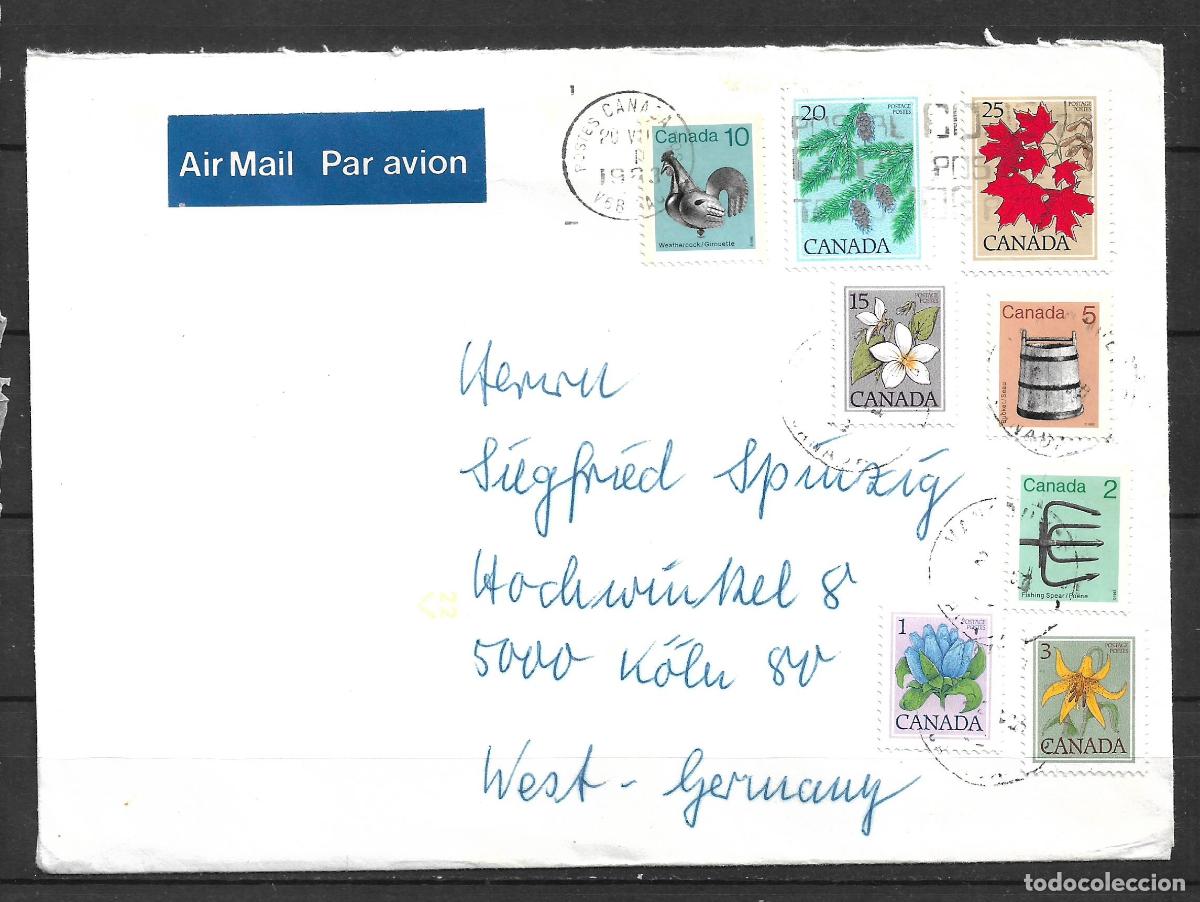 Air Mail Par avion
POSTES CANADA
1983
V6B
Canada 10
Weathercock/Girouette
20 POSTAGE POSTES
CANADA
25 POSTAGE POSTES
CANADA
POSTAL CO
15 POSTAGE POSTES
CANADA
Canada 5
Bucket/Seau
Herrn
Siegfried Spinzig
Hochwinkel 8
5000 Köln 80
West-Germany
Canada 2
Fishing Spear/Fouëne
1 POSTAGE POSTES
CANADA
3 POSTAGE POSTES
CANADA
22
todocoleccion